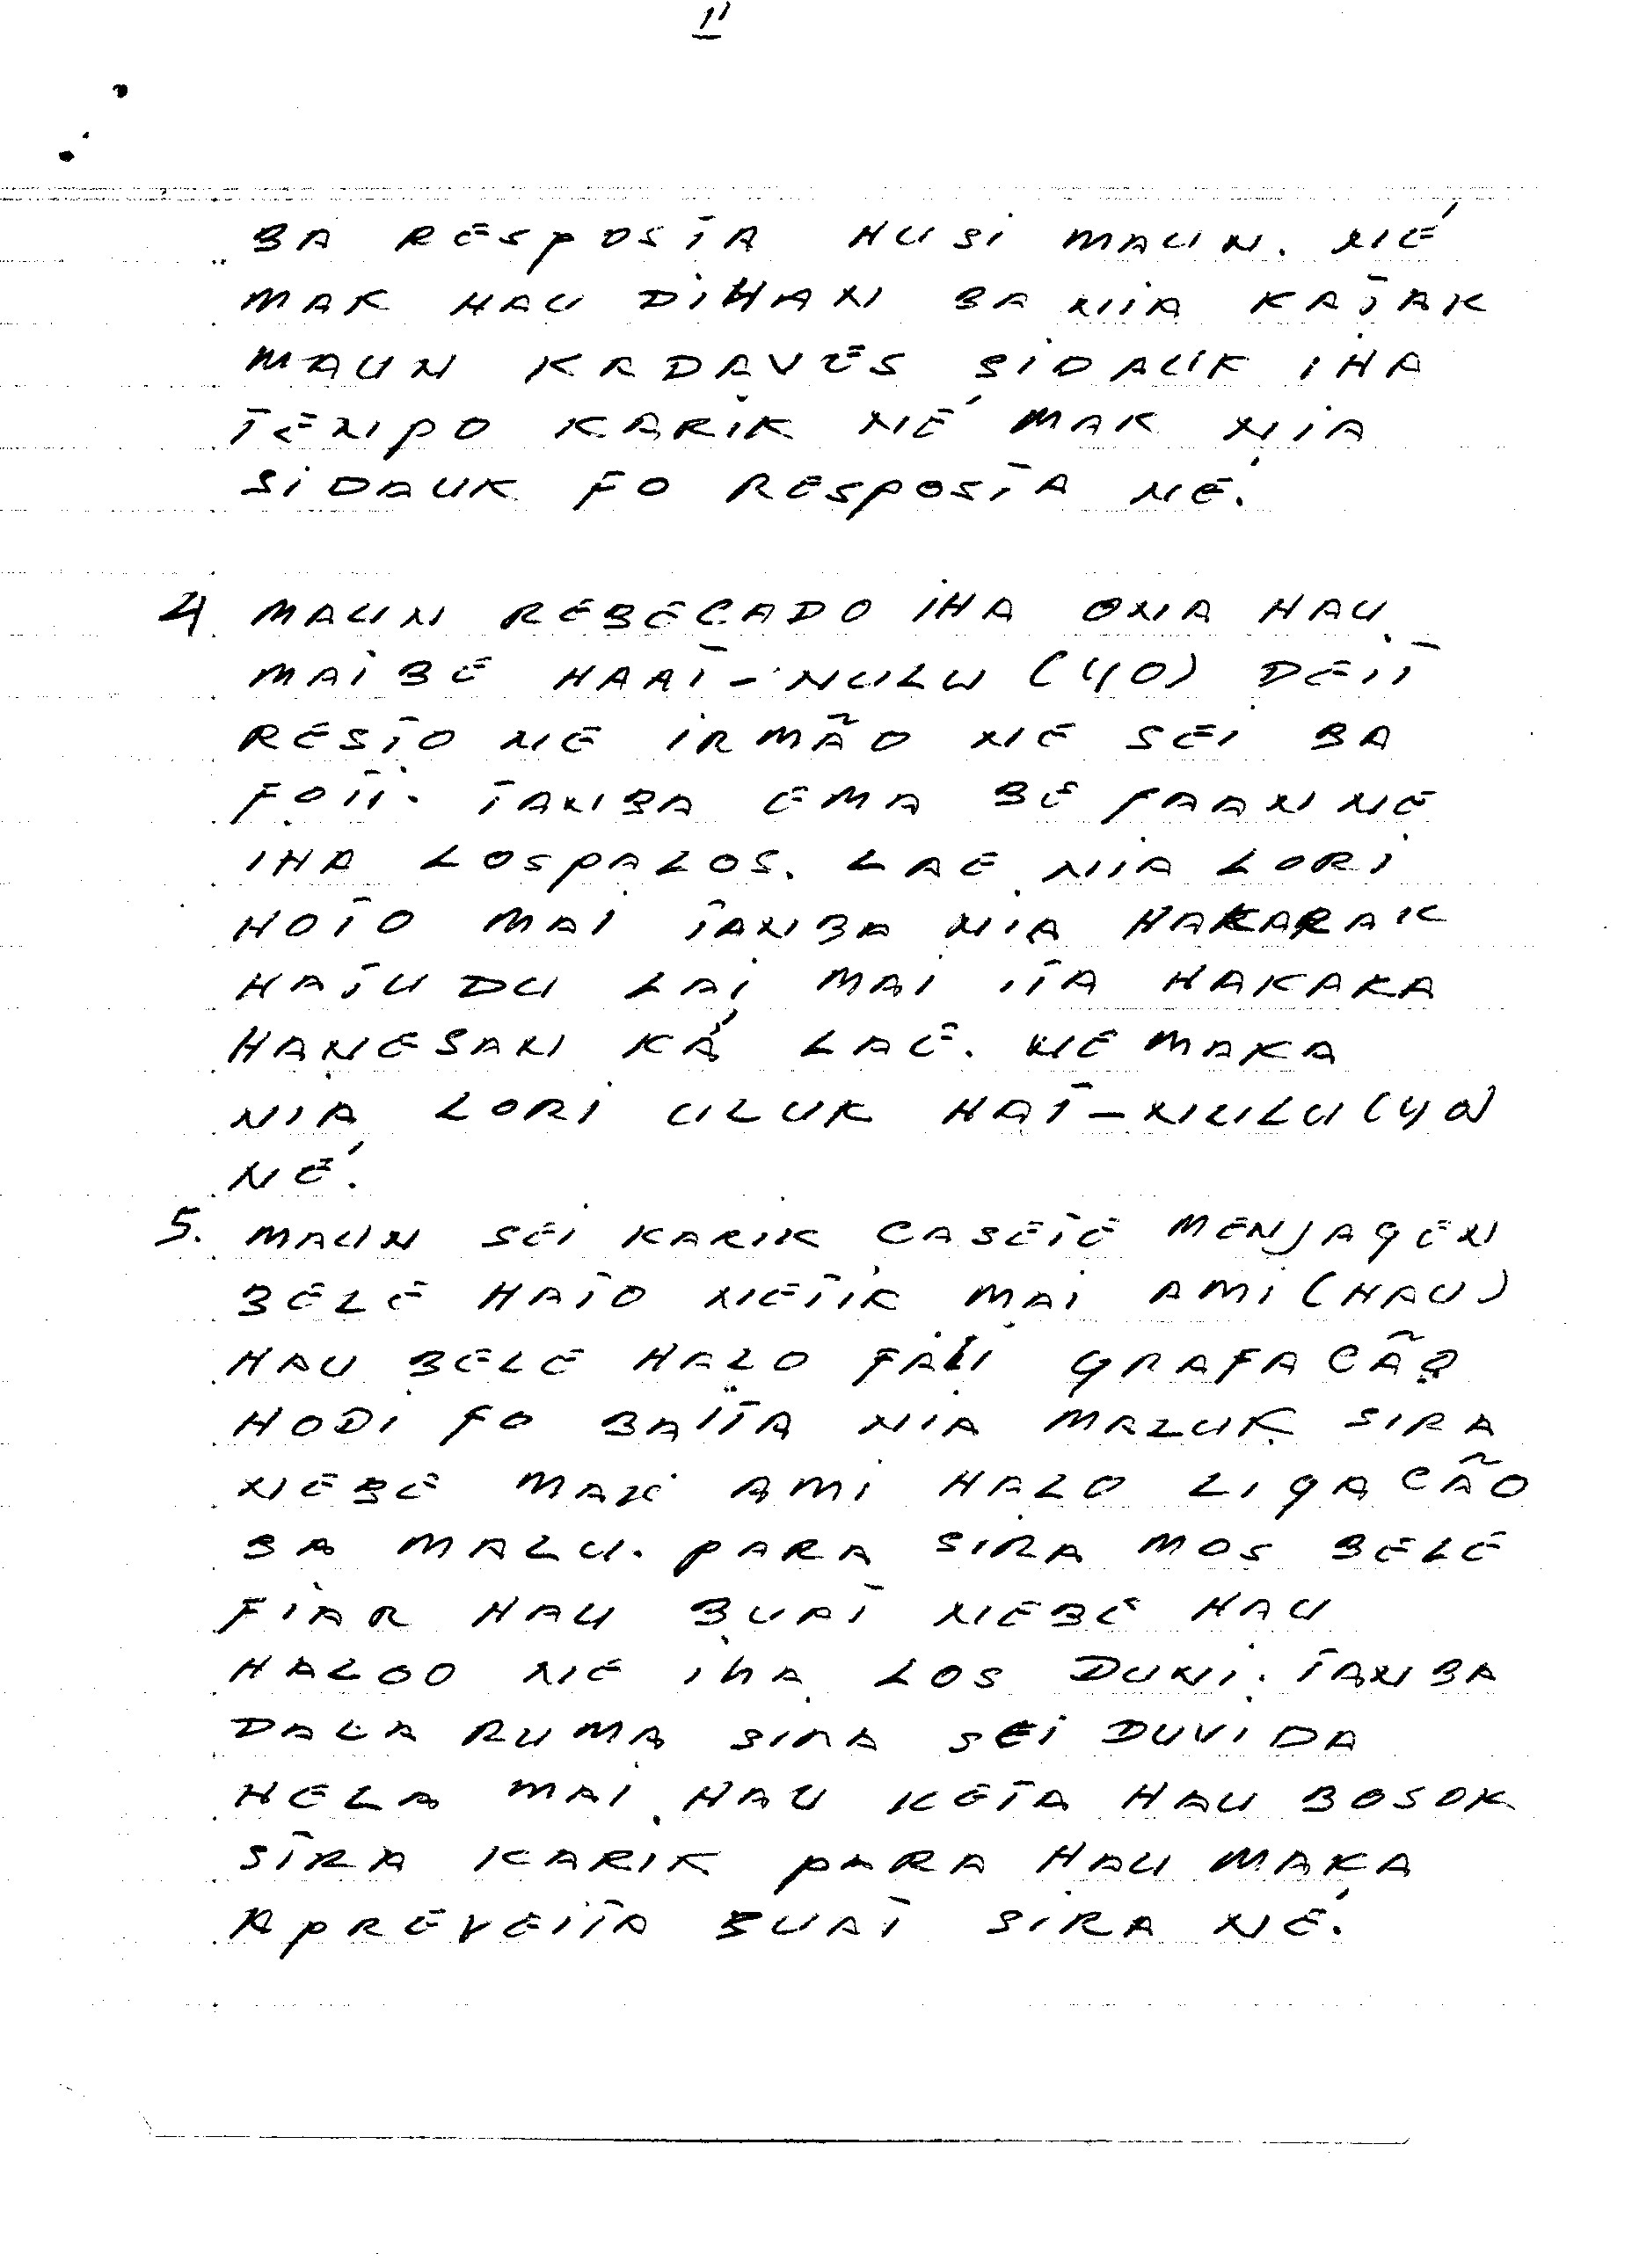 11
BA RESPOSTA HUSI MAUN. NÉ
MAK HAU DIHAN BA NIA KATAK
MAUN KADAVES SIDAUK IHA
TEMPO KARIK NÉ MAK NIA
SIDAUK FO RESPOSTA NÉ.
4 MAUN REBECADO IHA ONA HAU
MAIBE HAAT-NULU (40) DEIT
RESTO NE IRMÃO NE SEI BA
FOTI. TANBA EMA BE FAAN NE
IHA LOSPALOS. LAE NIA LORI
HOTO MAI TANBA NIA HAKARAK
HATUDU LAI MAI ITA HAKARA
HANESAN KÁ LAE. NE MAKA
NIA LORI ULUK HAT-NULU (40)
NÉ.
5. MAUN SEI KARIK CASETE MENJAGEN
BELE HATO NETIK MAI AMI (HAU)
HAU BELE HALO FALI GRAFACÃO
HODI FO BA ITA NIA MALUK SIRA
NEBE MAK AMI HALO LIGACÃO
BA MALU. PARA SIRA MOS BELE
FIAR HAU BUAT NEBE HAU
HALOO NE IHA LOS DUNI. TANBA
DALA RUMA SIRA SEI DUVIDA
HELA MAI HAU KETA HAU BOSOK
SIRA KARIK PARA HAU MAKA
APREVEITA BUAT SIRA NÉ.